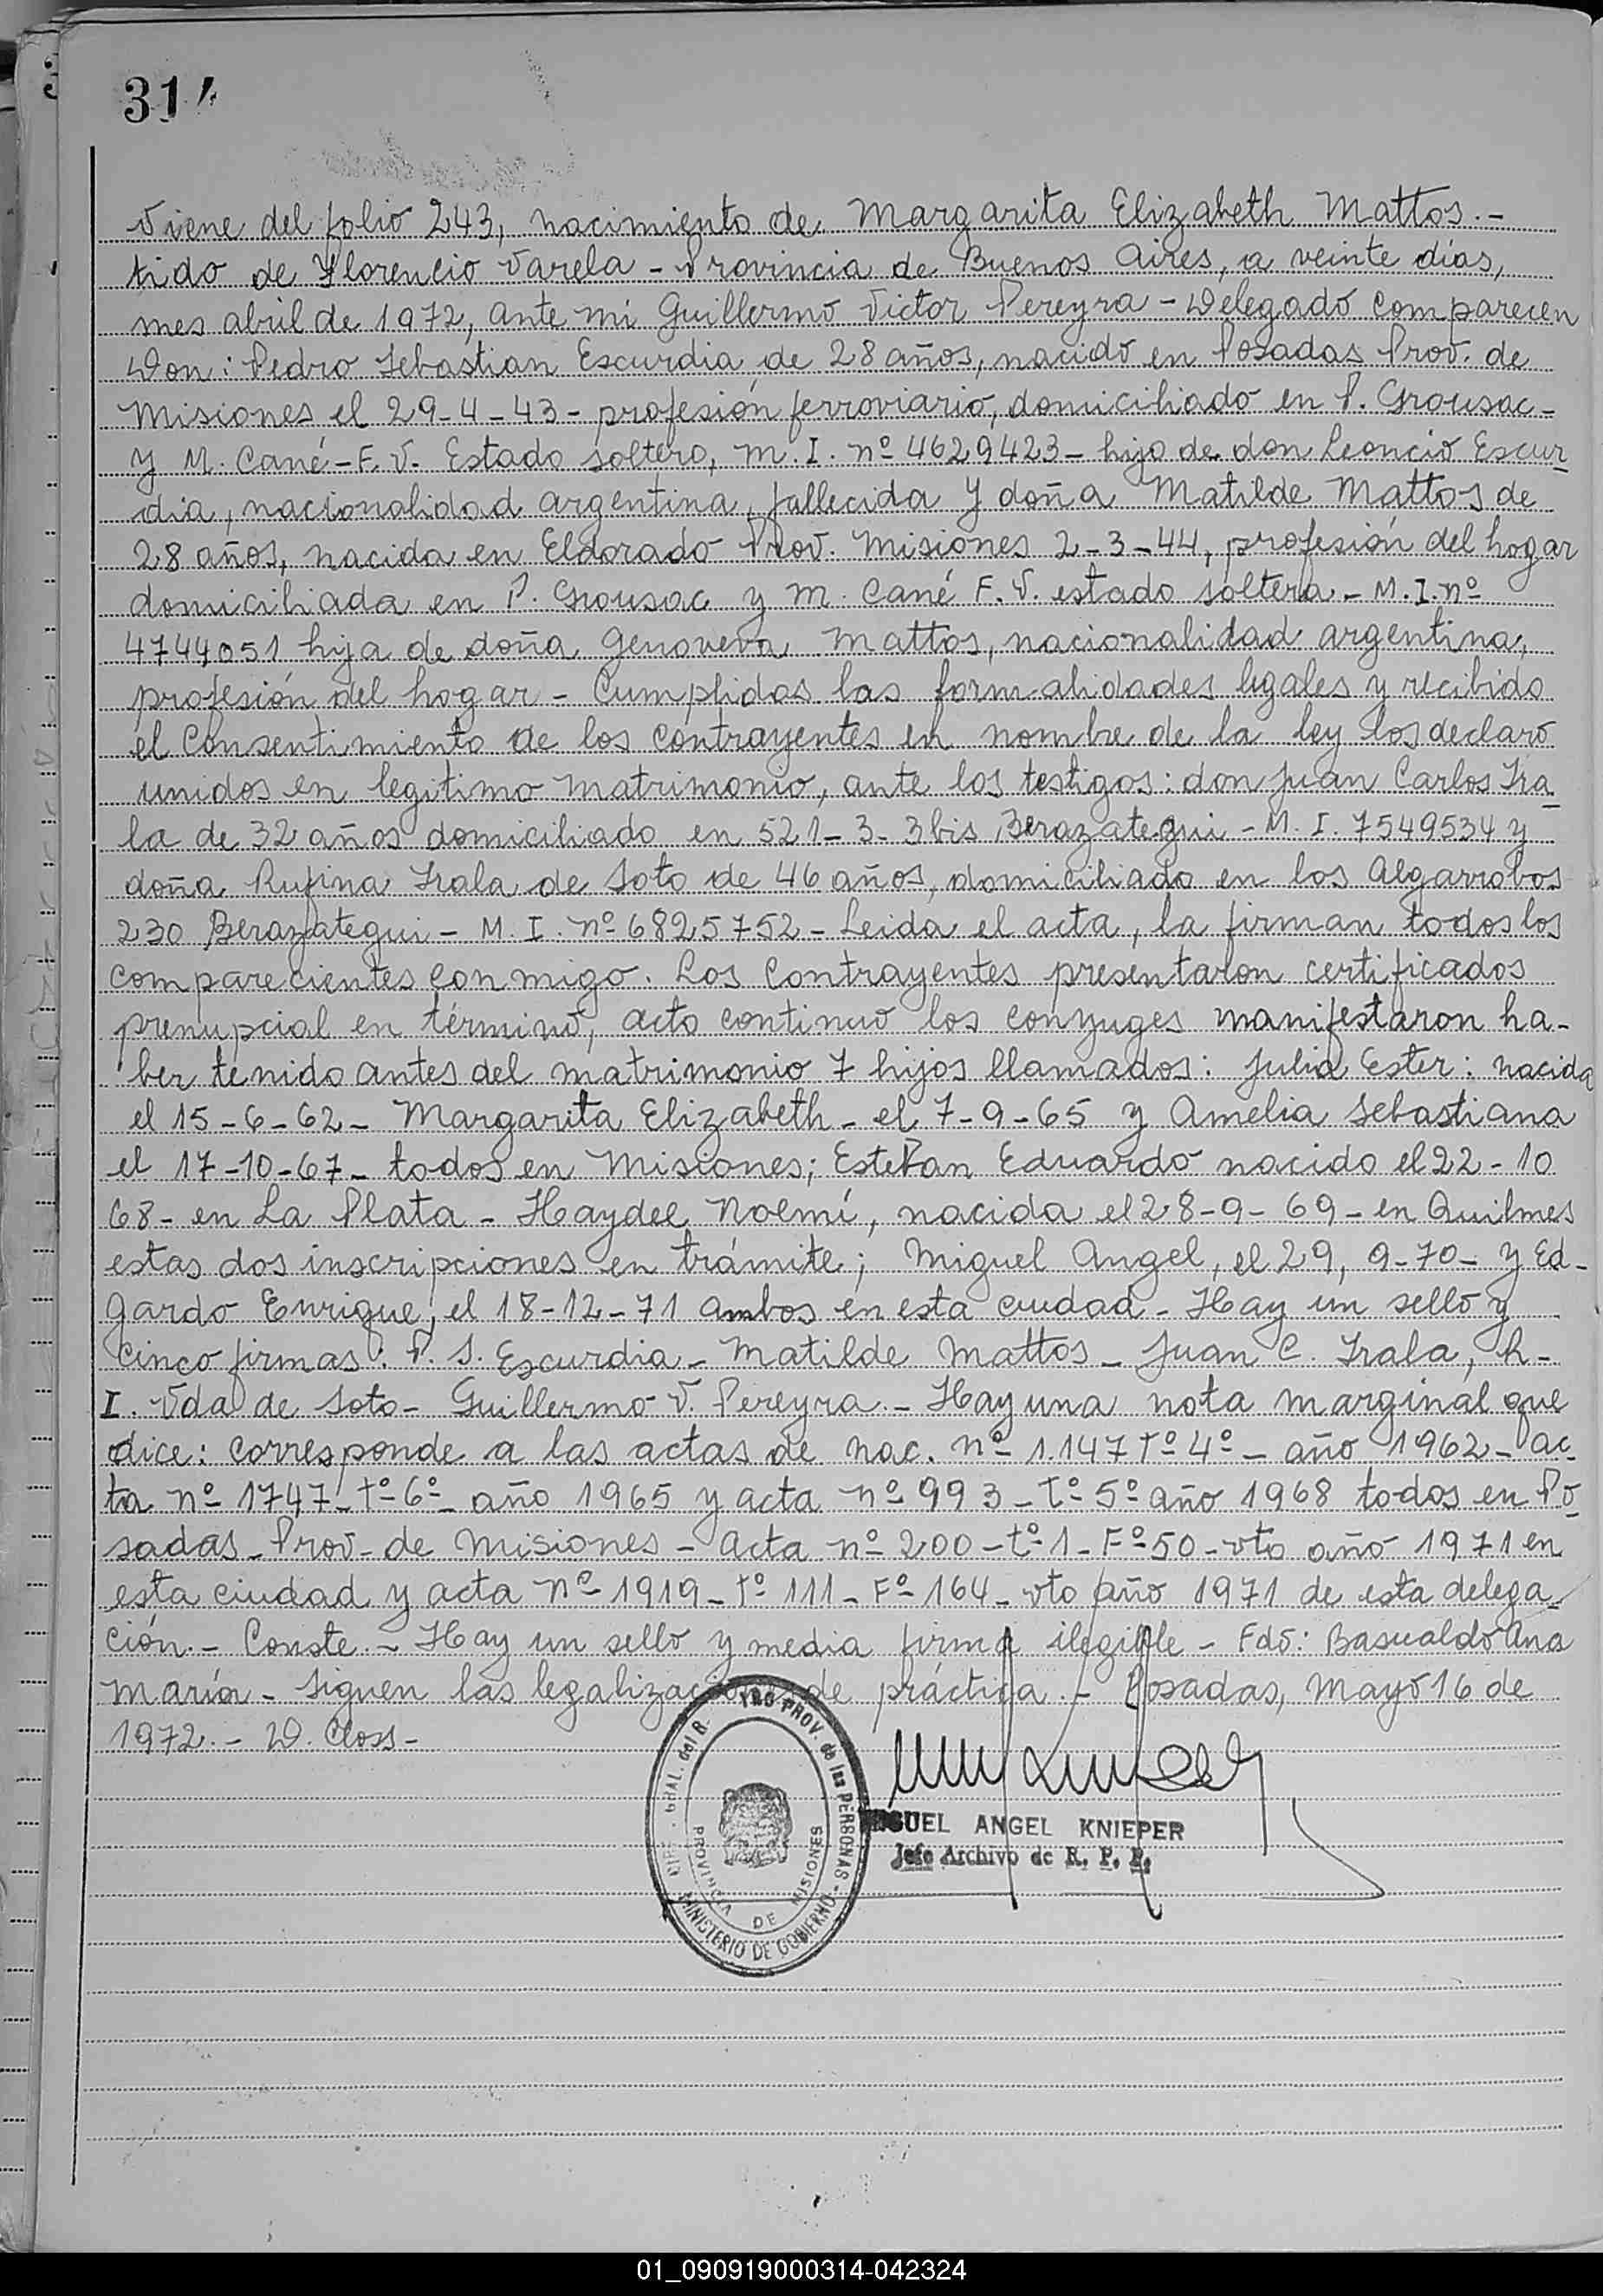 314
Viene del folio 243, nacimiento de Margarita Elizabeth Mattos.-
tido de Florencio Varela - Provincia de Buenos Aires, a veinte días,
mes abril de 1972, ante mi Guillermo Victor Pereyra - Delegado comparecen
Don: Pedro Sebastian Escurdia de 28 años, nacido en Posadas Prov. de
Misiones el 29-4-43- profesión ferroviario, domiciliado en P. Grousac-
y M. Cané-F.V. Estado soltero, M.I. nº 4629423- hijo de don Leoncio Escur-
dia, nacionalidad argentina, fallecida y doña Matilde Mattos de
28 años, nacida en Eldorado Prov. Misiones 2-3-44, profesión del hogar
domiciliada en P. Grousac y M. Cané F.V. estado soltera.- M.I. nº
4744051 hija de doña Genoveva Mattos, nacionalidad argentina,
profesión del hogar - Cumplidas las formalidades legales y recibido
el consentimiento de los contrayentes en nombre de la ley los declaro
unidos en legitimo matrimonio, ante los testigos: don Juan Carlos Ira-
la de 32 años domiciliado en 521-3-3bis Berazategui - M.I. 7549534 y
doña Rufina Irala de Soto de 46 años, domiciliado en los Algarrobos
230 Berazategui - M.I. nº 6825752 - Leida el acta, la firman todos los
comparecientes conmigo. Los contrayentes presentaron certificados
prenupcial en término, acto continuo los conyuges manifestaron ha-
ber tenido antes del matrimonio 7 hijos llamados: Julia Ester: nacida
el 15-6-62- Margarita Elizabeth- el 7-9-65 y Amelia Sebastiana
el 17-10-67- todos en Misiones; Esteban Eduardo nacido el 22-10
68- en La Plata - Haydee Noemí, nacida el 28-9-69- en Quilmes
estas dos inscripciones en trámite; Miguel Angel, el 29, 9-70- y Ed-
gardo Enrique, el 18-12-71 ambos en esta ciudad - Hay un sello y
cinco firmas: P. S. Escurdia - Matilde Mattos - Juan C. Irala, R-
I. Vda de Soto - Guillermo V. Pereyra.- Hay una nota marginal que
dice: corresponde a las actas de nac. nº 1.147 tº 4º- año 1962- ac-
ta nº 1747- tº 6º- año 1965 y acta nº 993- tº 5º año 1968 todos en Po-
sadas- Prov- de Misiones - acta nº 200- tº 1- Fº 50- vto año 1971 en
esta ciudad y acta nº 1919- tº 111- Fº 164- vto año 1971 de esta delega-
ción.- Conste.- Hay un sello y media firma ilegible - Fdo: Basualdo Ana
María - Siguen las legalizaciones de práctica.- Posadas, Mayo 16 de
1972.- D. Closs-
DIRE. GRAL. del R. TRO PROV. de las PERSONAS - MINISTERIO DE GOBIERNO
PROVINCIA DE MISIONES
MIGUEL ANGEL KNIEPER
Jefe Archivo de R. P. P.
01_090919000314-042324